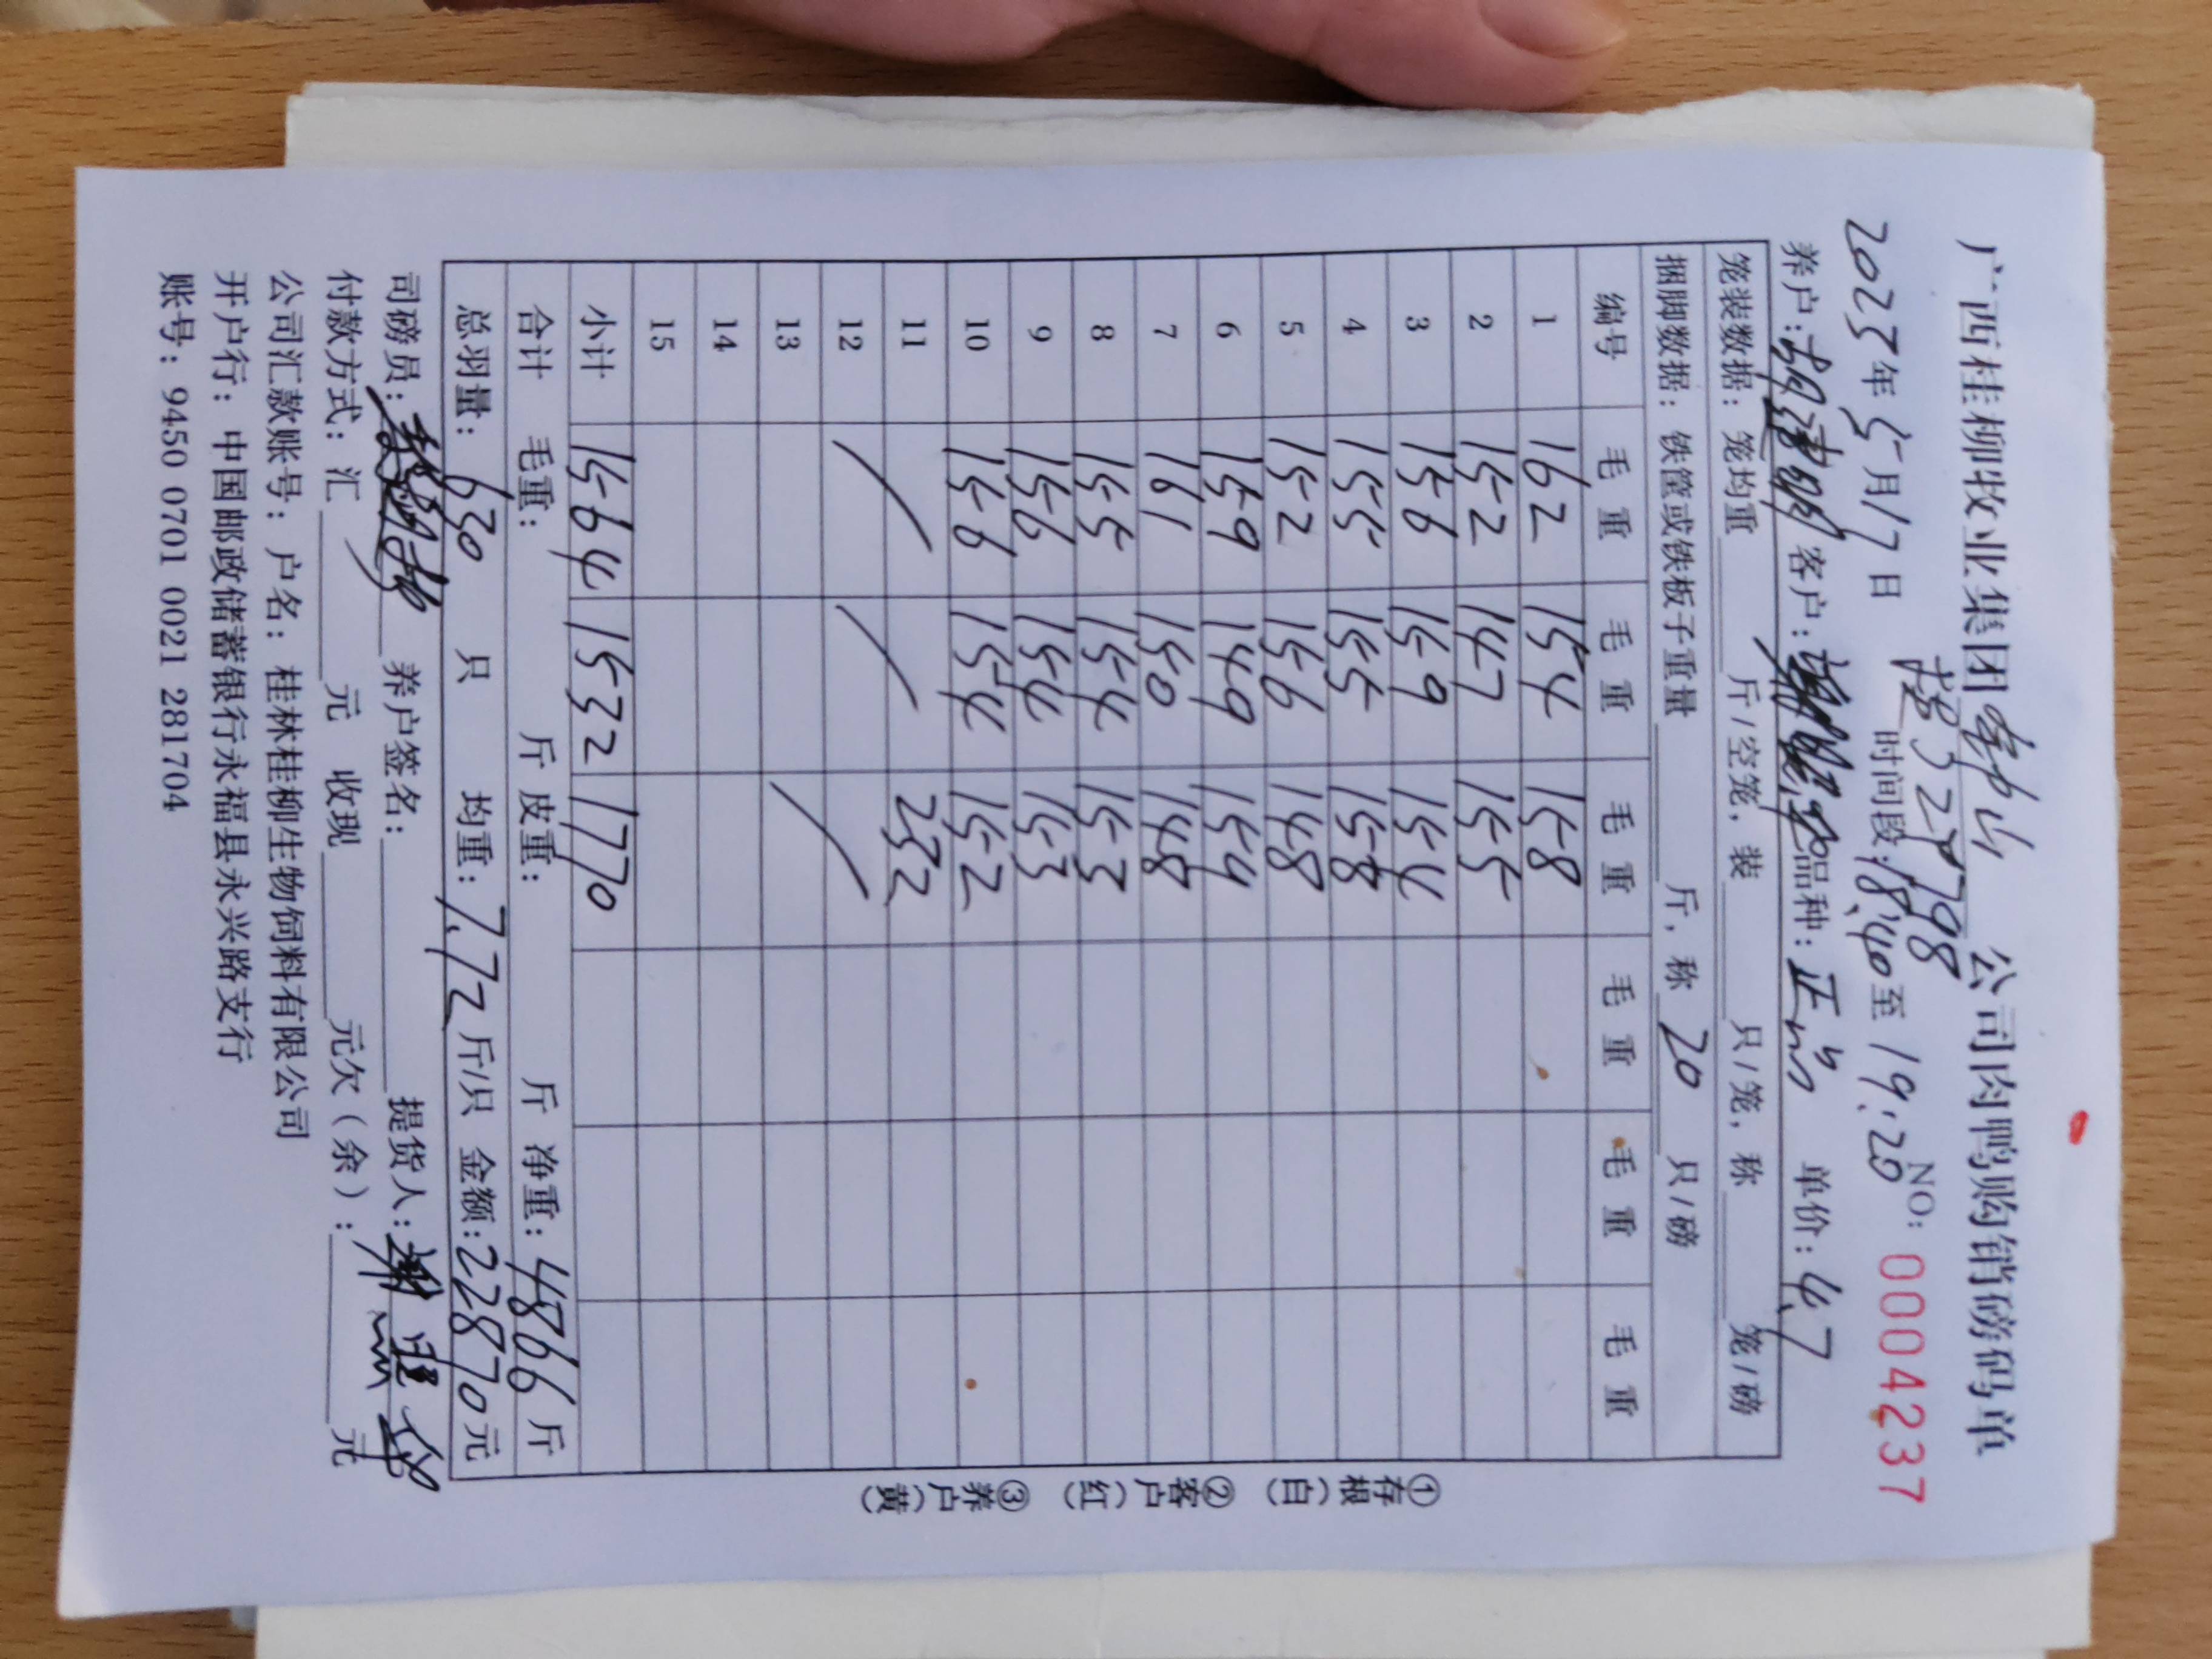 广西桂柳牧业集团 公司肉鸭购销磅码单
32798
2025年5月17日 时间段:18:40至19:20 NO: 0004237
养户: 客户: 品种: 单价:4.7
笼装数据: 笼均重 斤/空笼, 装 只/笼, 称 笼/磅
捆脚数据: 铁筐或铁板子重量 斤, 称 20 只/磅
编号 毛重 毛重 毛重 毛重 毛重 毛重
1 162 154 158
2 152 147 155
3 156 159 154
4 155 155 158
5 152 156 148
6 159 149 154
7 161 150 148
8 155 154 153
9 156 154 153
10 156 154 152
11 232
12
13
14
15
小计 1564 1532 1770
合计 毛重: 斤 皮重: 斤 净重: 4866 斤
总羽量: 630 只 均重: 7.72 斤/只 金额: 22870元
司磅员: 养户签名: 提货人:
付款方式: 汇 元 收现 元欠(余): 元
公司汇款账号: 户名: 桂林桂柳生物饲料有限公司
开户行: 中国邮政储蓄银行永福县永兴路支行
账号: 9450 0701 0021 281704
①存根(白) ②客户(红) ③养户(黄)